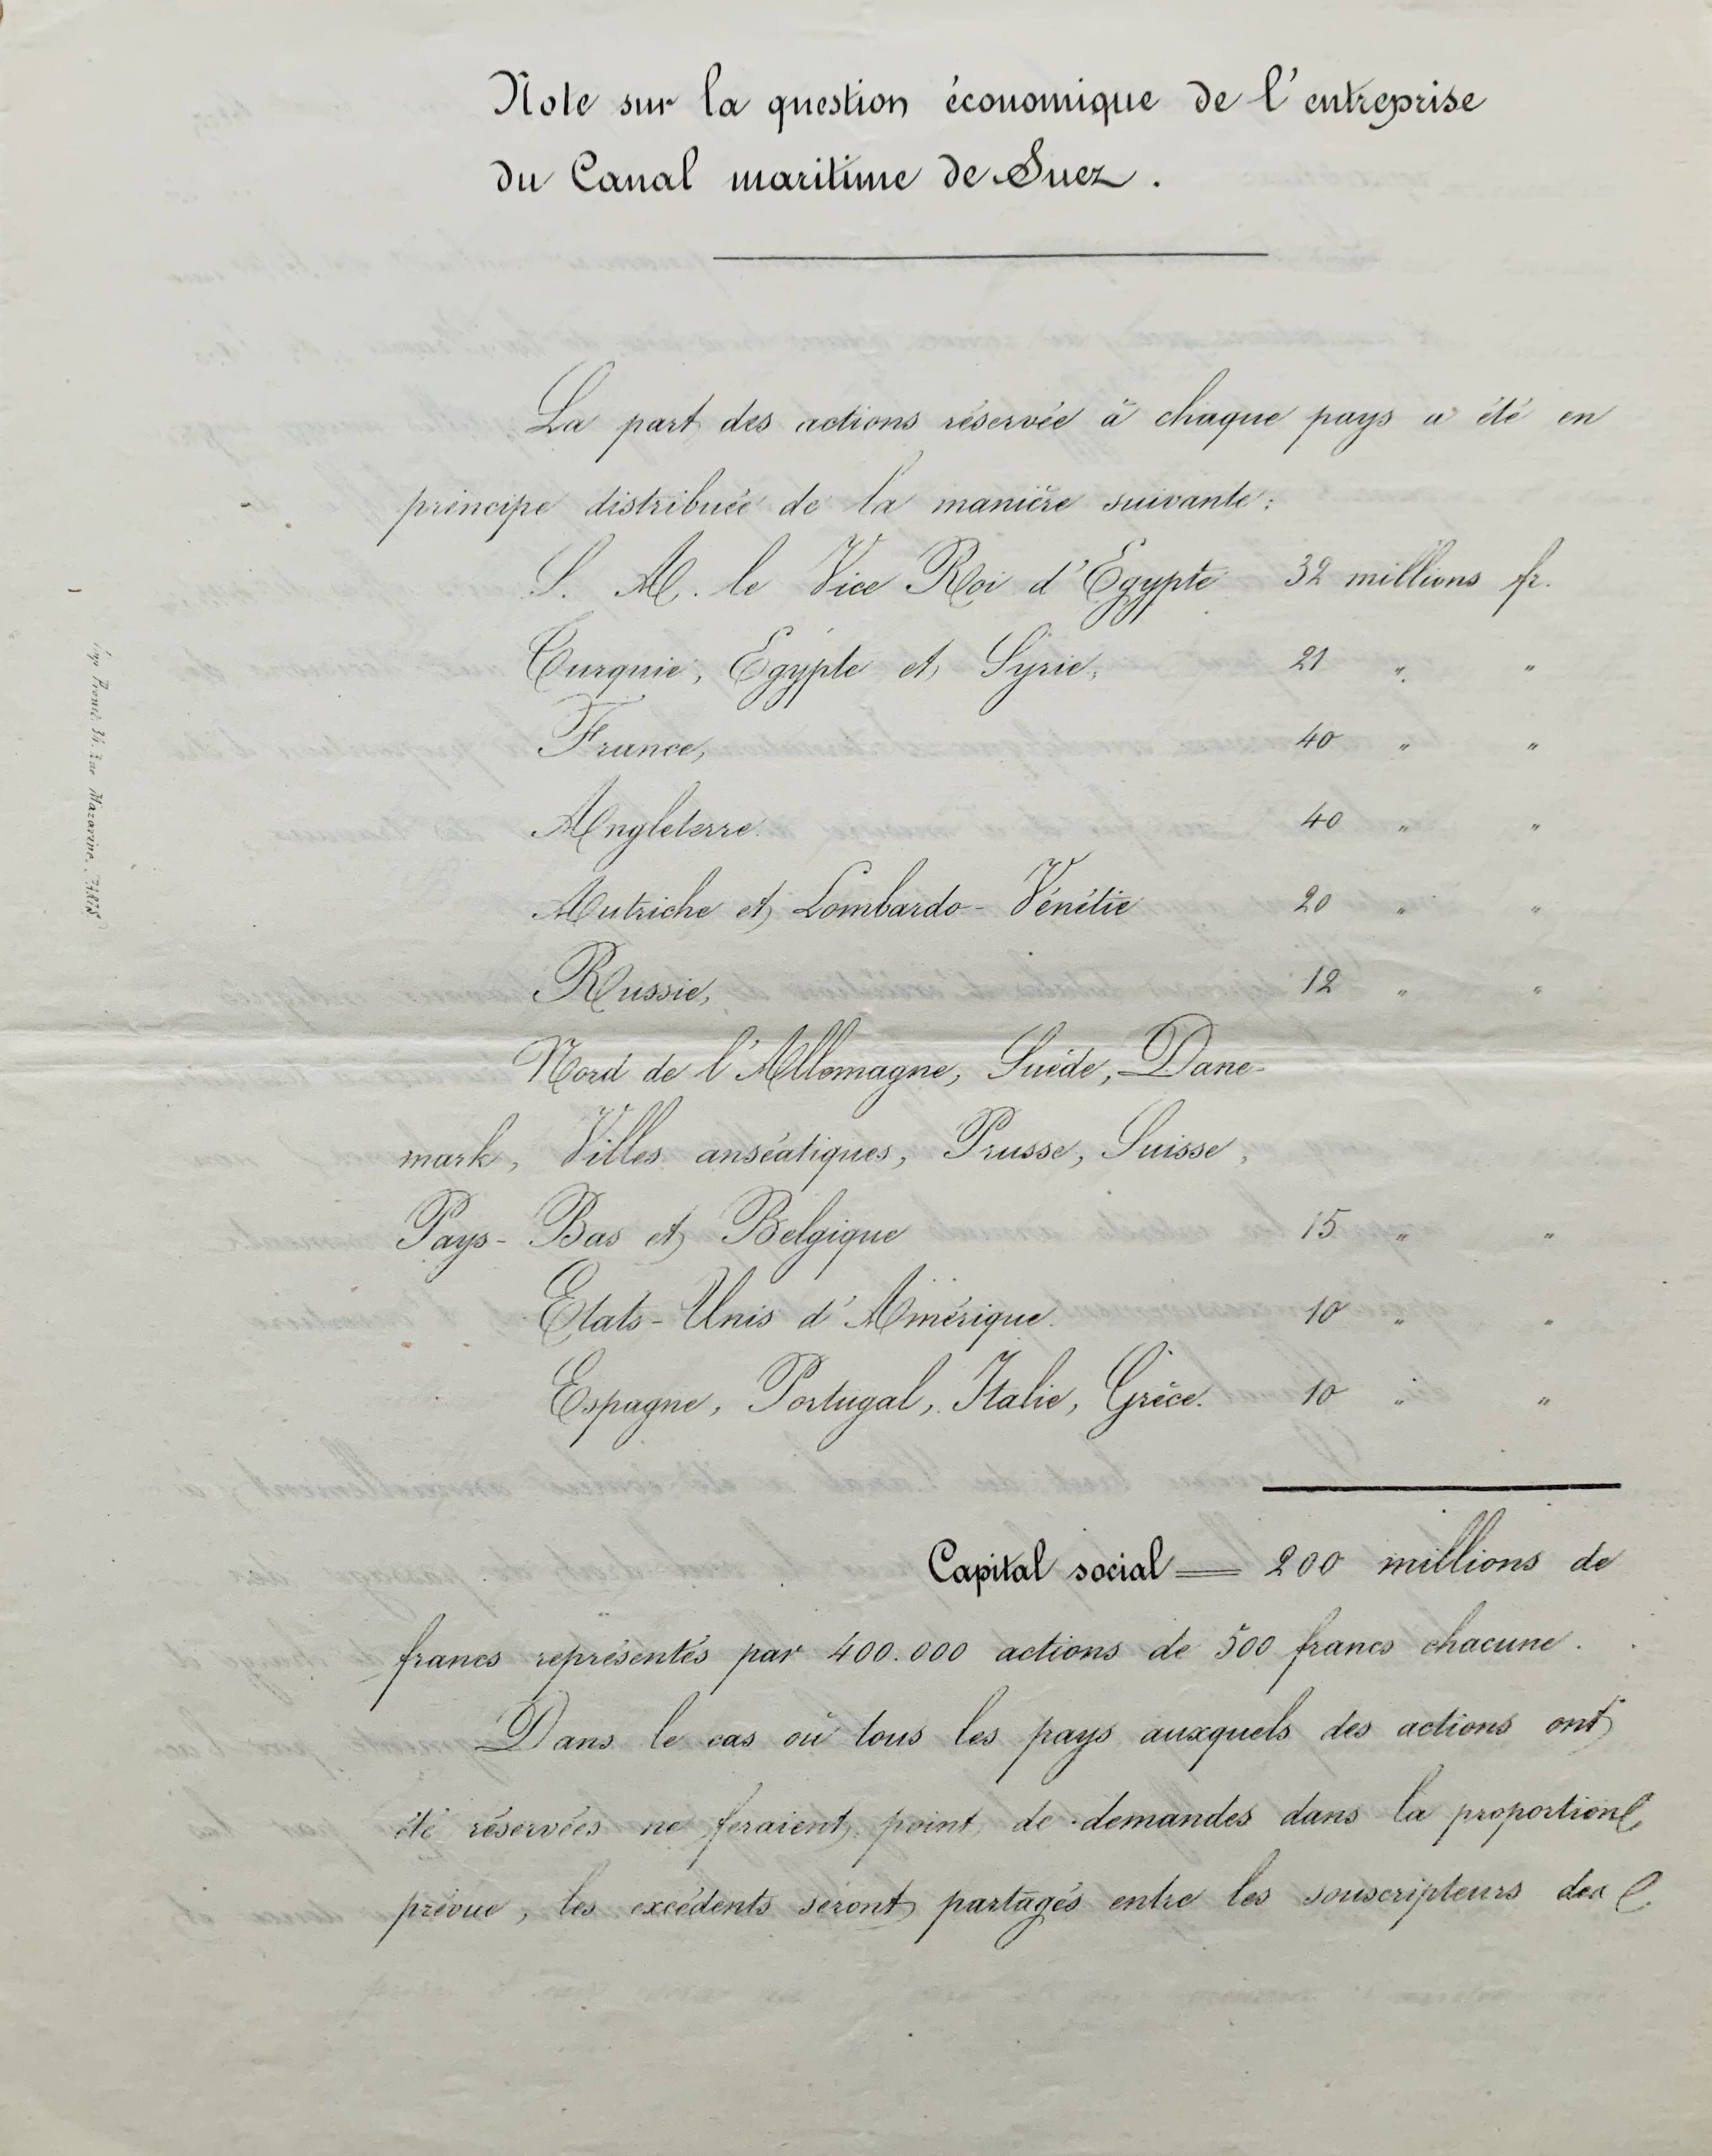 Note sur la question économique de l'entreprise
du Canal maritime de Suez.
La part des actions réservée à chaque pays a été en
principe distribuée de la manière suivante:
S. A. le Vice Roi d'Egypte 32 millions fr.
Turquie, Egypte et Syrie, 21 " "
France, 40 " "
Angleterre. 40 " "
Autriche et Lombardo-Vénétie 20 " "
Russie, 12 " "
Nord de l'Allemagne, Suède, Dane-
mark, Villes anséatiques, Prusse, Suisse,
Pays-Bas et Belgique 15 " "
Etats-Unis d'Amérique. 10 " "
Espagne, Portugal, Italie, Grèce. 10 " "
Capital social = 200 millions de
francs représentés par 400.000 actions de 500 francs chacune.
Dans le cas où tous les pays auxquels des actions ont
été réservées ne feraient point de demandes dans la proportion
prévue, les excédents seront partagés entre les souscripteurs des
34. rue Mazarine. PARIS